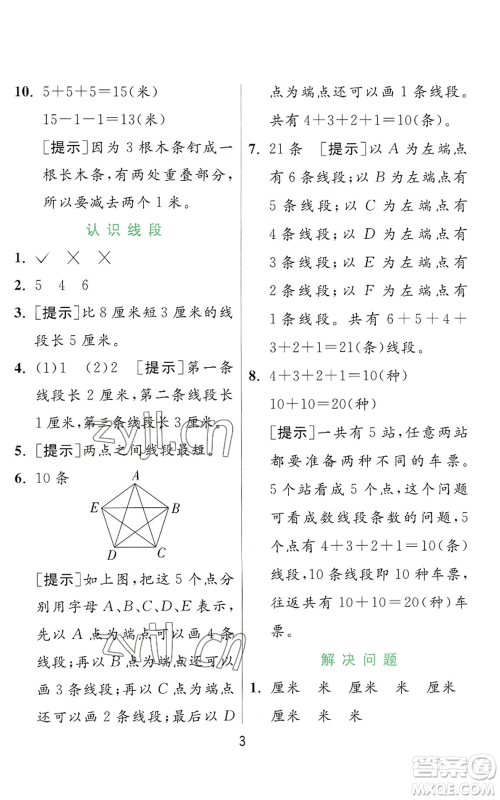 10. 5+5+5=15(米)
15-1-1=13(米)
[提示]因为 3 根木条钉成一
根长木条，有两处重叠部分，
所以要减去两个 1 米。
认识线段
1. ✓ × ×
2. 5 4 6
3. [提示]比 8 厘米短 3 厘米的线
段长 5 厘米。
4. (1)1 (2)2 [提示]第一条
线段长 2 厘米，第二条线段长
1 厘米，第三条线段长 1 厘米。
5. [提示]两点之间线段最短。
6. 10 条
A
E B
D C
[提示]如上图，把这 5 个点分
别用字母 A、B、C、D、E 表示，
先以 A 点为端点可以画 4 条
线段；再以 B 点为端点还可以
画 3 条线段；再以 C 点为端点
还可以画 2 条线段；最后以 D
点为端点还可以画 1 条线段。
共有 4+3+2+1=10(条)。
7. 21 条 [提示]以 A 为左端点
有 6 条线段；以 B 为左端点有
5 条线段；以 C 为左端点有
4 条线段；以 D 为左端点有
3 条线段；以 E 为左端点有
2 条线段；以 F 为左端点有
1 条线段。共有 6+5+4+
3+2+1=21(条)线段。
8. 4+3+2+1=10(种)
10+10=20(种)
[提示]一共有 5 站，任意两站
都要准备两种不同的车票。
5 个站看成 5 个点，这个问题
可看成数线段条数的问题，5
个点有 4+3+2+1=10(条)
线段，10 条线段即 10 种车票，
往返共有 10+10=20(种)车
票。
解决问题
1. 厘米 厘米 米 厘米 米
厘米 米 米
3
zyjl.cn
zyjl.cn
答案圈
MXQE.COM